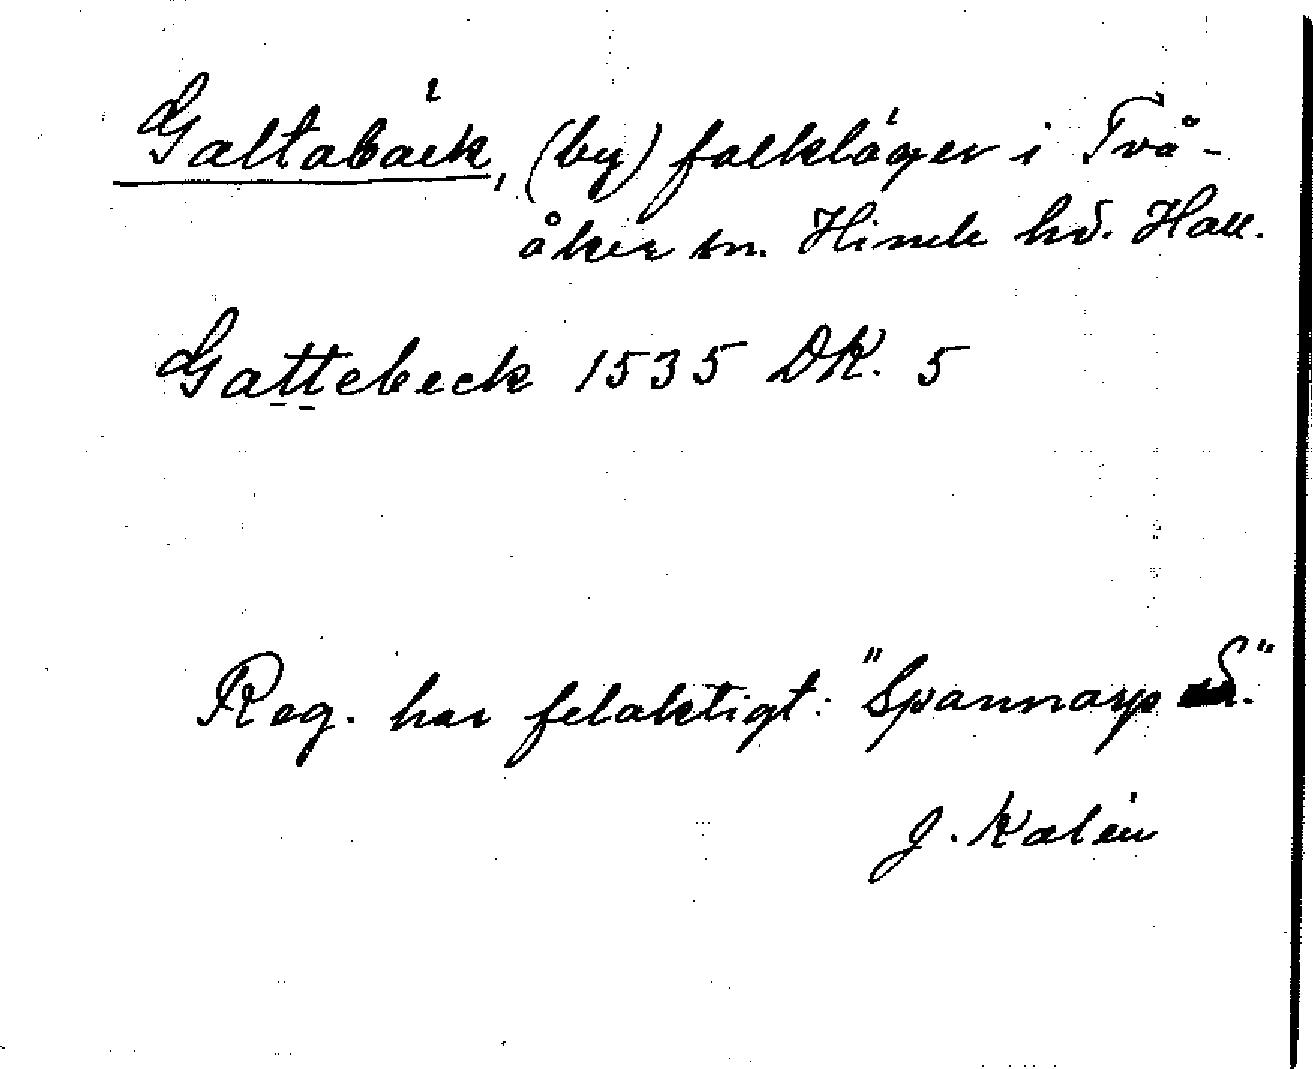 Galtabäck, (by) folkläger i Två-
åker sn. Himle hd. Hall.
Gattebeck 1535 DK. 5
Reg. har felaktigt: "Spannarp S."
J. Kalén